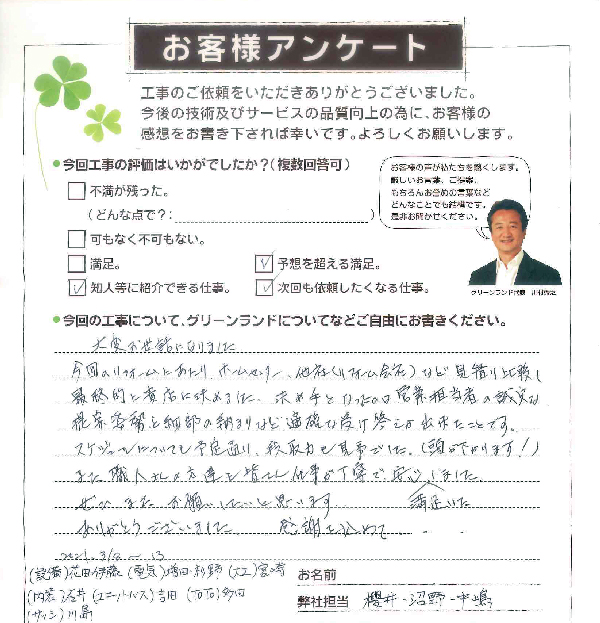 お客様アンケート
工事のご依頼をいただきありがとうございました。
今後の技術及びサービスの品質向上の為に、お客様の
感想をお書き下されば幸いです。よろしくお願いします。
今回工事の評価はいかがでしたか?(複数回答可)
不満が残った。
(どんな点で?: )
可もなく不可もない。
満足。
予想を超える満足。
知人等に紹介できる仕事。
次回も依頼したくなる仕事。
お客様の声が私たちを磨くします。
厳しいお言葉、ご提案、
もちろんお誉めの言葉など
どんなことでも結構です。
是非お聞かせください。
グリーンランド代表
今回の工事について、グリーンランドについてなどご自由にお書きください。
大変お世話になりました
今回のリフォームにあたり、ホームセンター、他社(リフォーム会社)など見積り比較し
最終的に貴店に決めました。決め手となったのは営業担当者の誠実な
提案容態と細部の納まりなど適確な受け答えが出来たことです。
スケジュールについても予定通り、段取力も見事でした。(頭が下がります!)
また職人さんの方達も皆さん仕事が丁寧で、安心しました。
ぜひまたお願いしたいと思います 満足した
ありがとうございました 感謝を込めて・・・
2021.3/2 ー 13
(設備)花田・伊藤 (電気)増田・杉野 (大工)宮崎
(内装)酒井 (ユニットバス)吉田 (TOTO)多田
(サッシ)川島
お名前
弊社担当 櫻井・沼野・中嶋